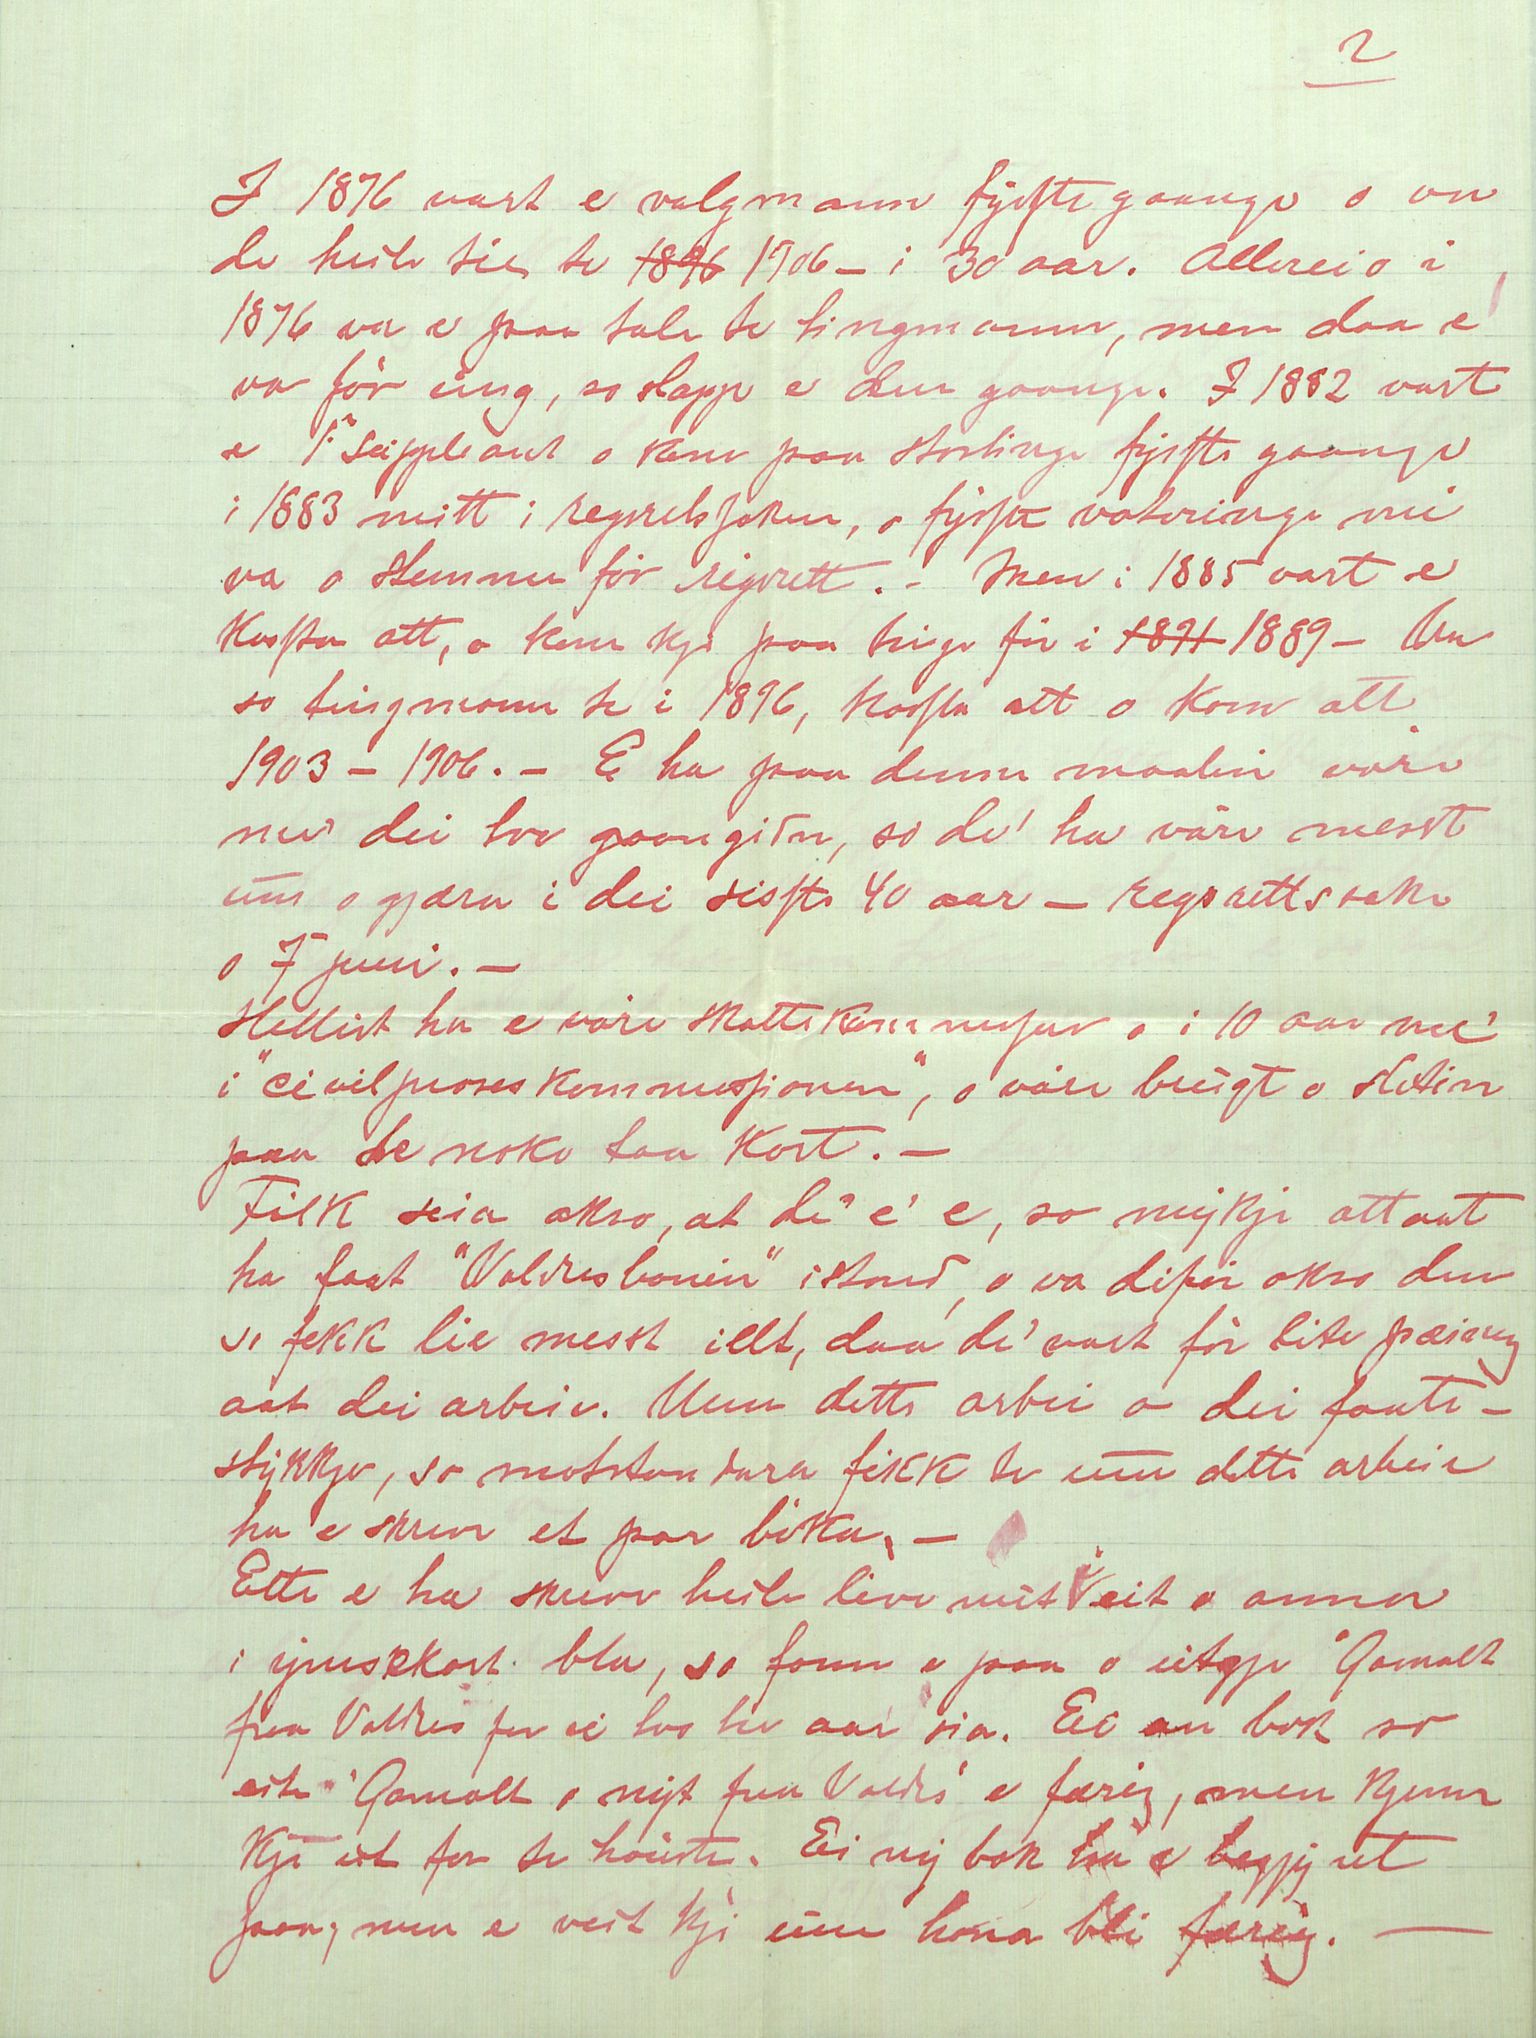 2
I 1876 vart e valgmann fysste gaange o va
de heile tie te 1896 1906 – i 30 aar. Allereio i
1876 va e paa tale te tingmann, men daa e
va før ung, so slapp e den gaange. I 1882 vart
e 1ͤ suppleant o kom paa Stortinge fysste gaange
i 1883 mitt i regsretssaken, o fysste voteringe mi
va o stemme før rigsrett. – Men i 1885 vart e
kassta att, o kom kje paa tinge før i 1891 1889 – Va
so tingmann te i 1896, kassta att o kom att
1903 – 1906. – E ha paa denne maatin vøre
me' dei too gaangidn, so de' ha vøre messt
um o gjæra i dei sisste 40 aar – regsrettssake
o 7 juni. –
Hellist ha e vøre skattekommissær o i 10 aar me'
i "civilproseskommissjonen", o vøre brugt o slitin
paa te noko taa kort. –
Følk seia okso, at de' e' e, so myкje attaat
ha faat "Valdresbanen" istand, o va difør okso den
so fekk lie messt illt, daa de' vart før lite pæing
aat dei arbeie. Um dette arbei o dei faate-
stykkje, so motstandara fekk te um dette arbeie
ha e skreve et par bøka. –
Ette e ha skreve heile live mitt i eit o anna
i ymisskort bla, so fann e paa o utgje "Gamalt
fraa Valdris" for ei too tri aar sia. Ei an bok so
eite "Gamalt o nyt fraa Valdris" e færig, men kjeme
kje ut for te høuste. Ei ny bok ha e begyj ut
paa, men e veit kje um hona bli færig. —